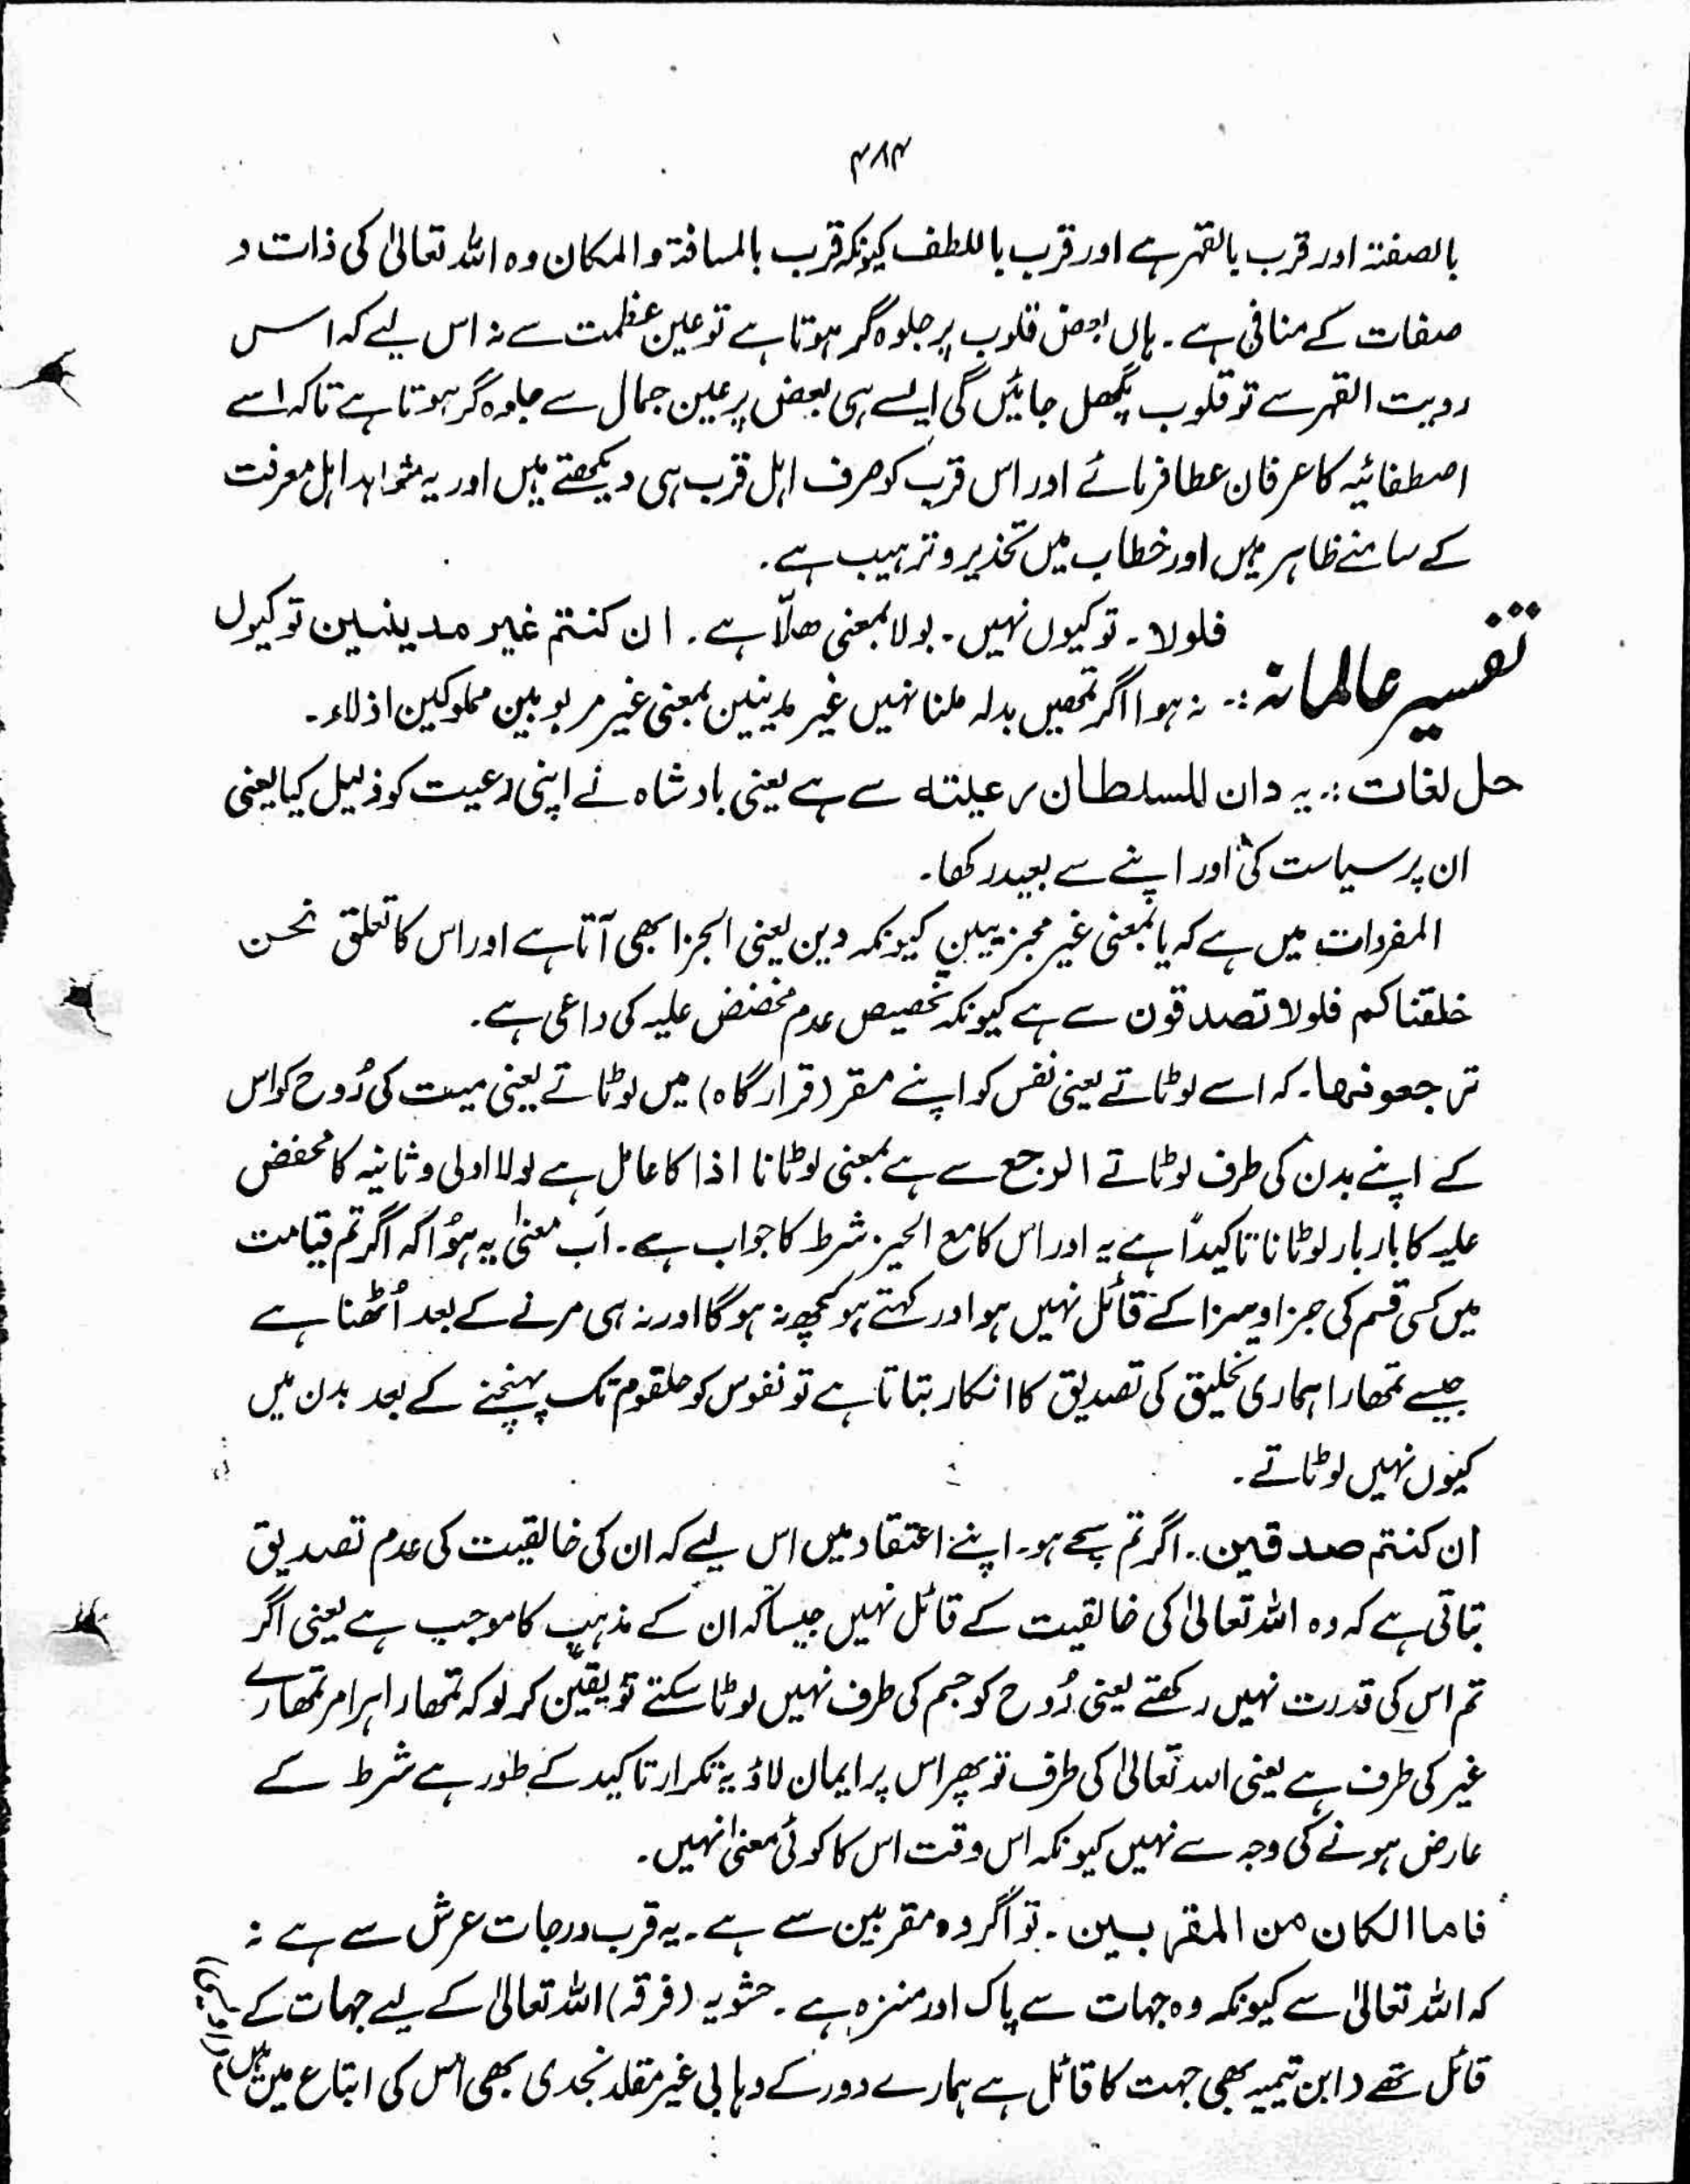 ۴۸۴
بالصفتہ اور قرب بالقہر ہے اور قرب باللطف کیونکہ قرب بالمسافۃ والمکان وہ اللہ تعالیٰ کی ذات و
صفات کے منافی ہے۔ ہاں بعض قلوب پر جلوہ گر ہوتا ہے تو عین عظمت سے نہ اس لیے کہ اسس
رویت القہر سے تو قلوب پگھل جائیں گی ایسے ہی بعض پر عین جمال سے جلوہ گر ہوتا ہے تاکہ اسے
اصطفائیہ کا عرفان عطا فرمائے اور اس قرب کو صرف اہل قرب ہی دیکھتے ہیں اور یہ شواہد اہل معرفت
کے سامنے ظاہر ہیں اور خطاب میں تحذیر و ترہیب ہے۔
فلولا۔ تو کیوں نہیں۔ لولا بمعنی ھلّا ہے۔ ان کنتم غیر مدینین تو کیوں
تفسیر عالمانہ :۔ نہ ہوا اگر تمھیں بدلہ ملنا نہیں غیر مدینین بمعنی غیر مربوبین مملوکین اذلاء۔
حل لغات :۔ یہ دان للسلطان رعیتہ سے ہے یعنی بادشاہ نے اپنی رعیت کو ذلیل کیا یعنی
ان پر سیاست کی اور اپنے سے بعید رکھا۔
المفردات میں ہے کہ یا بمعنی غیر مجزیین کیونکہ دین یعنی الجزا بھی آتا ہے اور اس کا تعلق نحن
خلقناکم فلولا تصدقون سے ہے کیونکہ تخصیص عدم مخضض علیہ کی داعی ہے۔
ترجعونھا۔ کہ اسے لوٹاتے یعنی نفس کو اپنے مقر (قرار گاہ) میں لوٹاتے یعنی میت کی رُوح کو اس
کے اپنے بدن کی طرف لوٹاتے الوجع سے ہے بمعنی لوٹانا اذا کا عامل ہے لولا اولی و ثانیہ کا محفض
علیہ کا بار بار لوٹانا تاکیداً ہے یہ اور اس کا مع الحیز شرط کا جواب ہے۔ اَب معنیٰ یہ ہُوا کہ اگر تم قیامت
میں کسی قسم کی جزا و سزا کے قائل نہیں ہو اور کہتے ہو کچھ نہ ہو گا اور نہ ہی مرنے کے بعد اُٹھنا ہے
جیسے تمھارا ہماری تخلیق کی تصدیق کا انکار بتاتا ہے تو نفوس کو حلقوم تک پہنچنے کے بعد بدن میں
کیوں نہیں لوٹاتے۔
ان کنتم صدقین۔ اگر تم سچے ہو۔ اپنے اعتقاد میں اس لیے کہ ان کی خالقیت کی عدم تصدیق
بتاتی ہے کہ وہ اللہ تعالیٰ کی خالقیت کے قائل نہیں جیسا کہ ان کے مذہب کا موجب ہے یعنی اگر
تم اس کی قدرت نہیں رکھتے یعنی رُوح کو جسم کی طرف نہیں لوٹا سکتے تو یقین کر لو کہ تمھارا ہر امر تمھارے
غیر کی طرف ہے یعنی اللہ تعالیٰ کی طرف تو پھر اس پر ایمان لاؤ یہ تکرار تاکید کے طور ہے شرط کے
عارض ہونے کی وجہ سے نہیں کیونکہ اس وقت اس کا کوئی معنیٰ نہیں۔
فاما الکان من المقربسین۔ تو اگر وہ مقربین سے ہے۔ یہ قرب درجات عرش سے ہے نہ
کہ اللہ تعالیٰ سے کیونکہ وہ جہات سے پاک اور منزہ ہے۔ حشویہ (فرقہ) اللہ تعالیٰ کے لیے جہات کے
قائل تھے (ابن تیمیہ بھی جہت کا قائل ہے ہمارے دور کے وہابی غیر مقلد نجدی بھی اس کی اتباع میں ہیں)